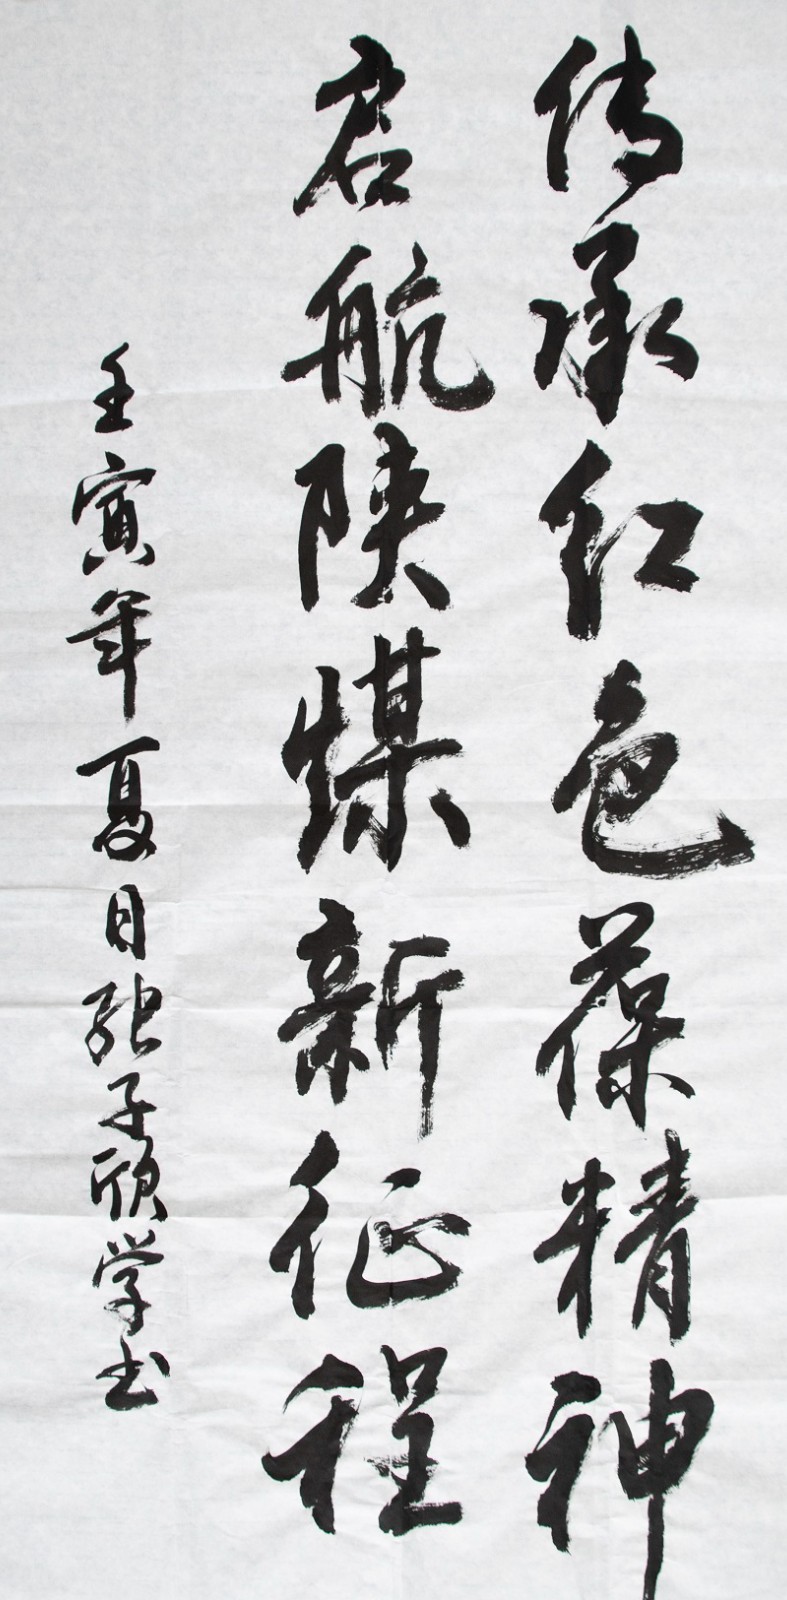 传承红色葆精神
启航陕煤新征程
壬寅年夏日张子欣学书